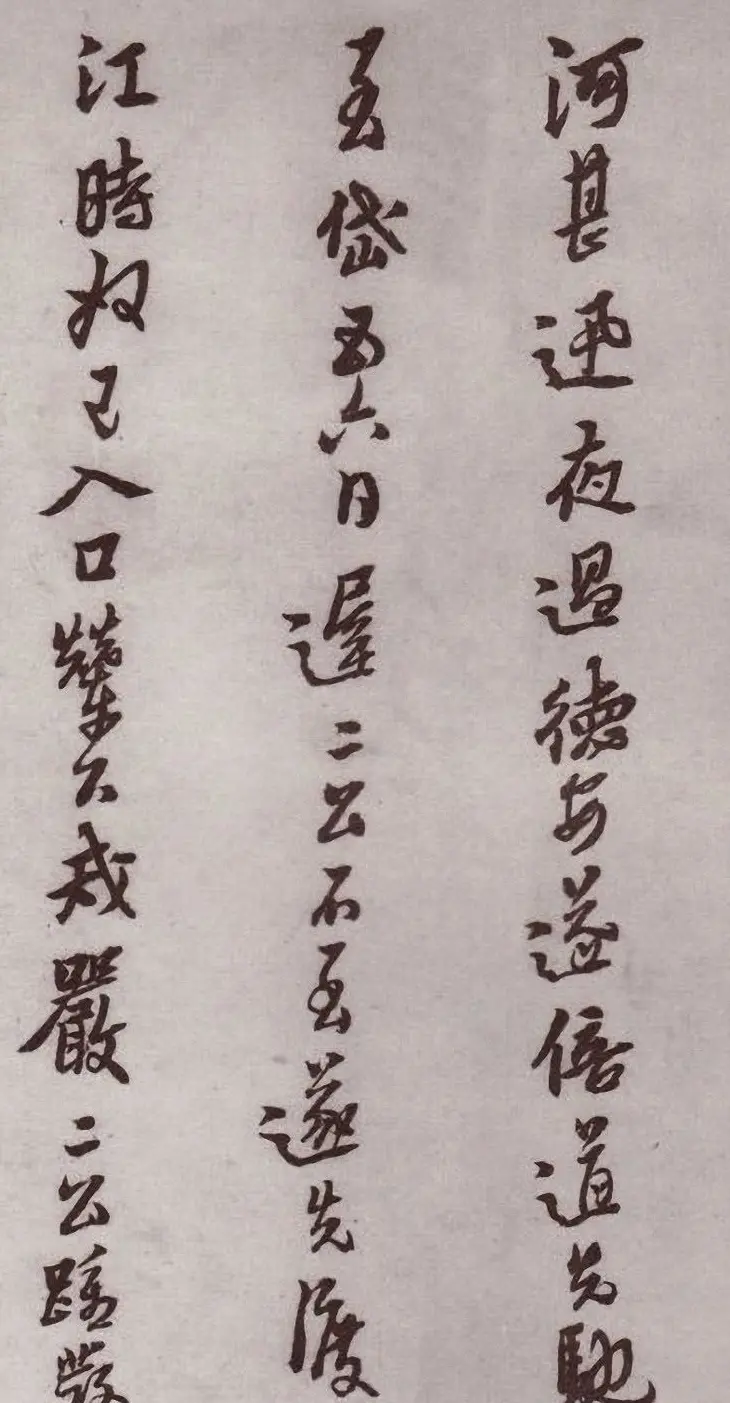 河甚迅夜過德安遂倍道先馳
至岱五六日遲二公不至遂先渡
江時奴已入口輦下戒嚴二公